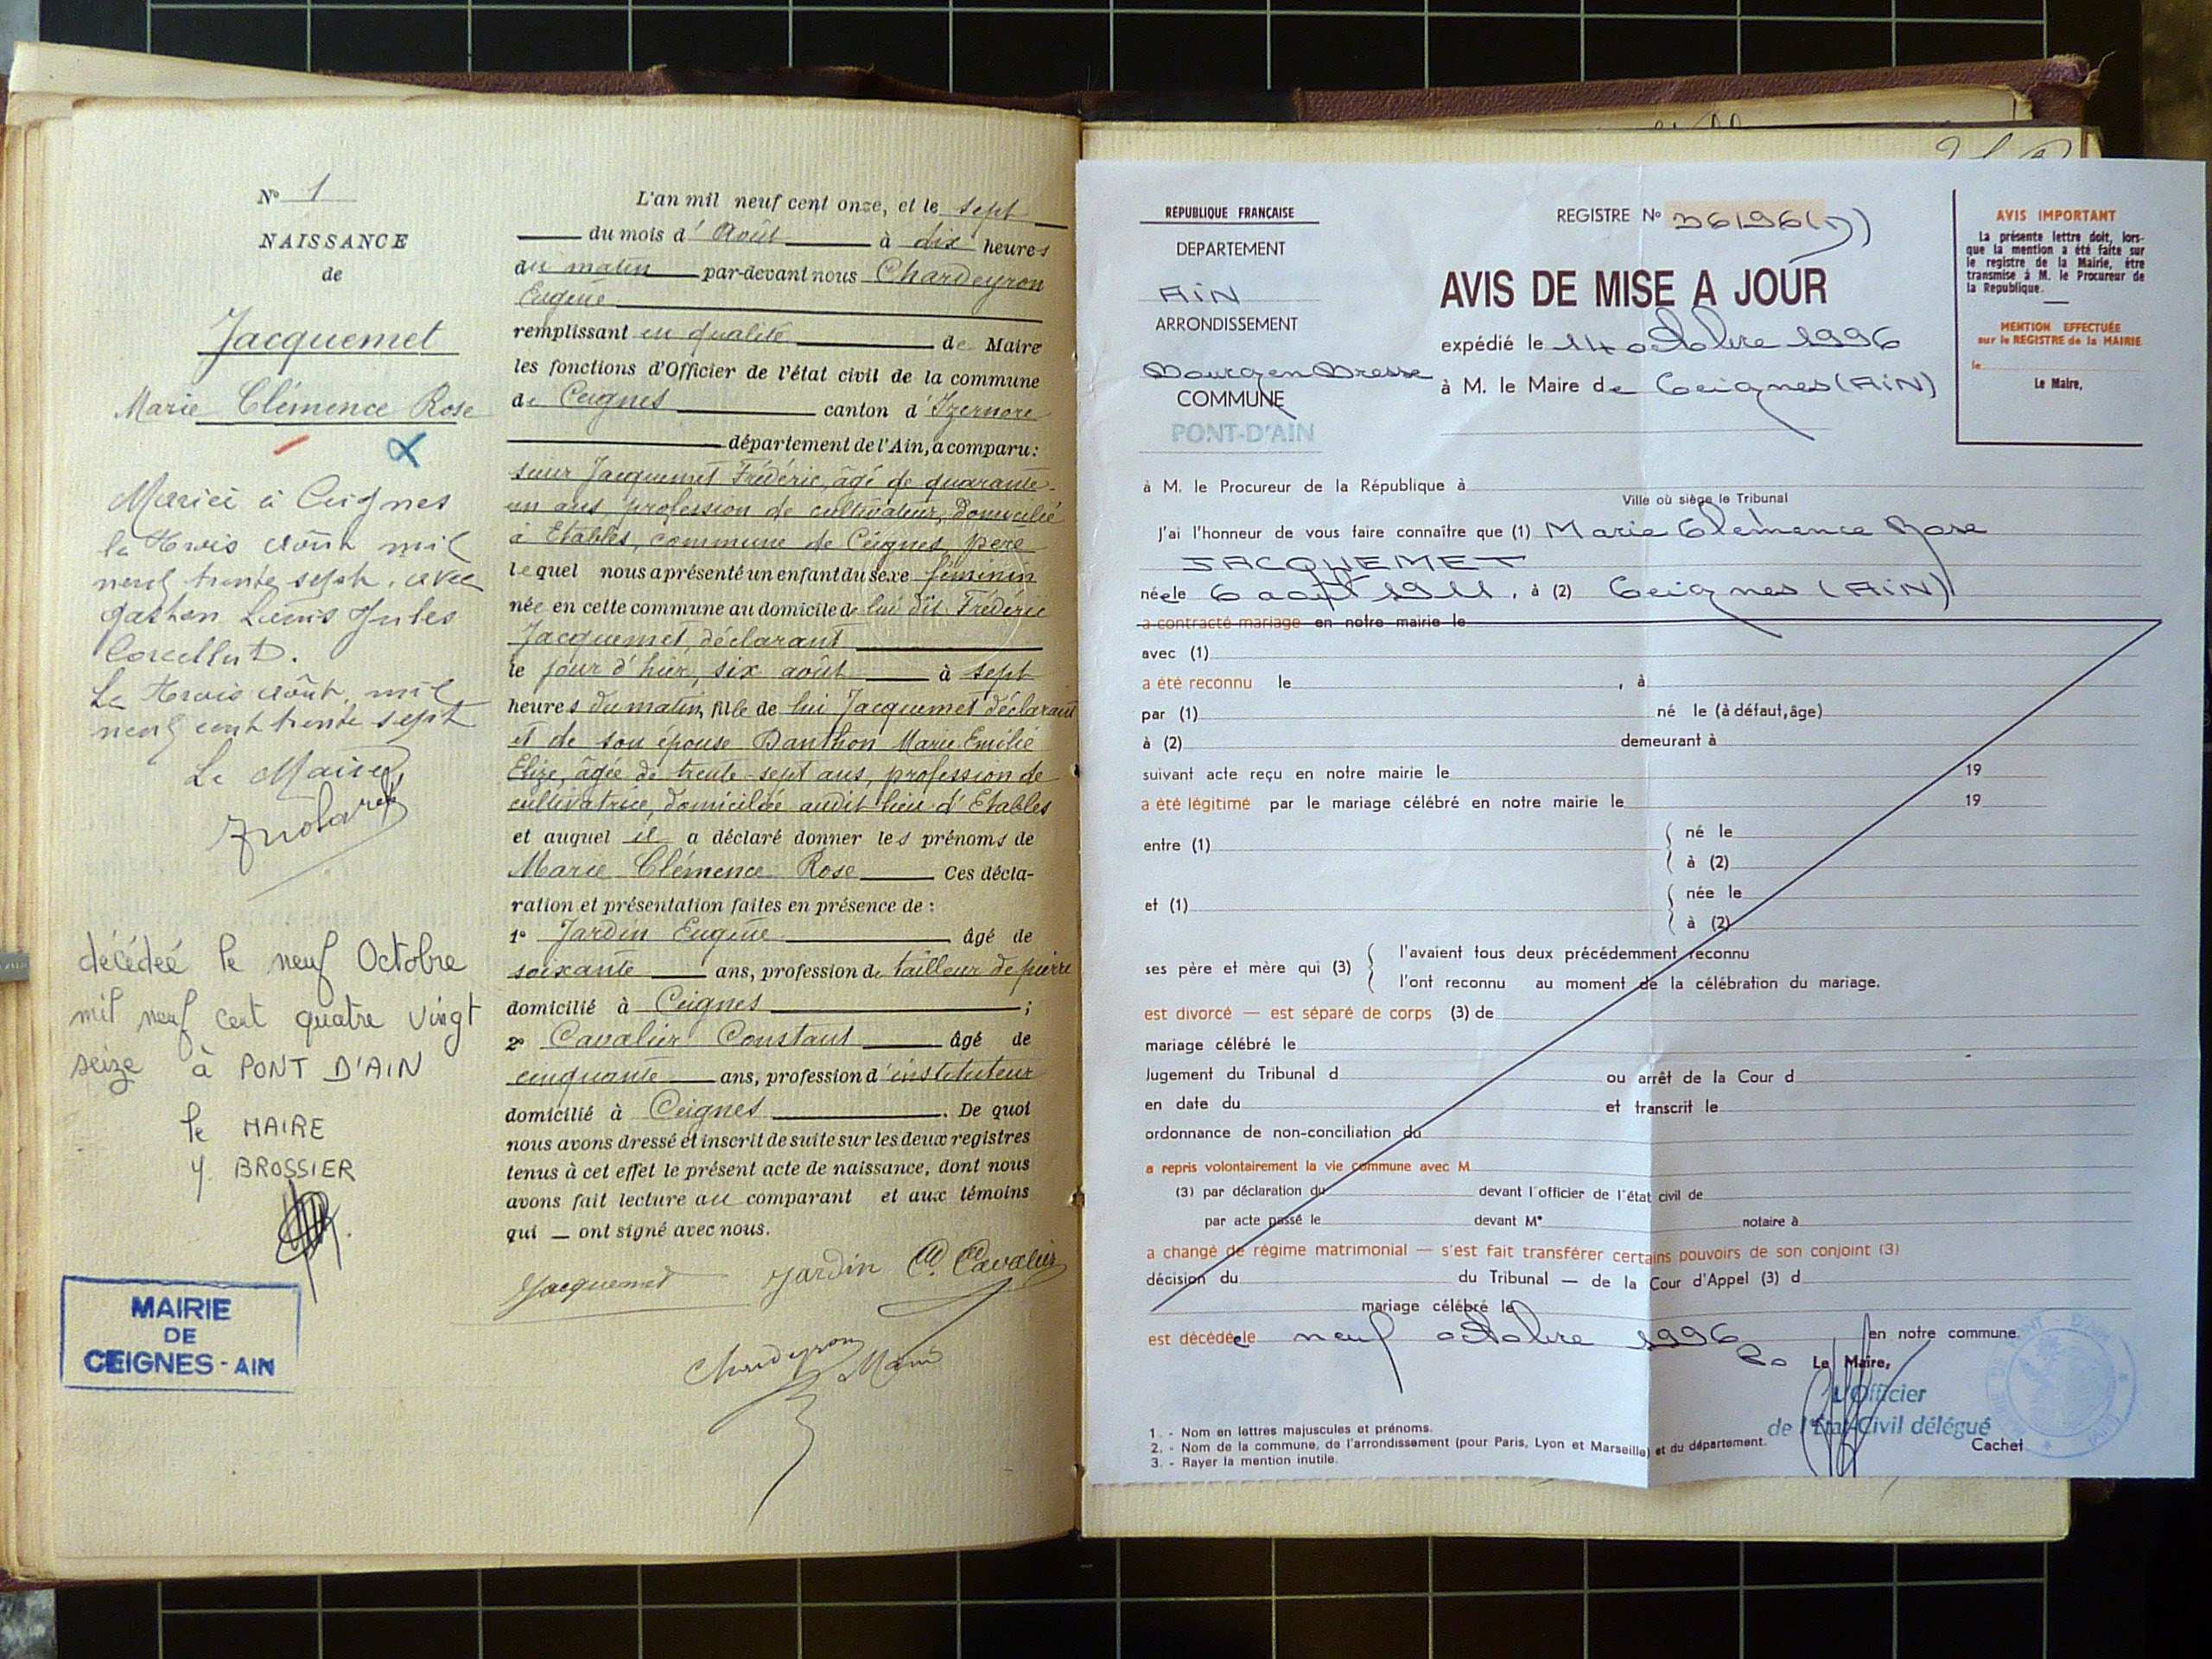 N° 1
NAISSANCE
de
Jacquemet
Marie Clémence Rose
Mariée à Ceignes
le trois août mil
neuf trente sept, avec
gaston Louis Jules
Corcellut.
Le trois août mil
neuf cent trente sept
Le Maire,
décédée le neuf Octobre
mil neuf cent quatre vingt
seize à PONT D'AIN
le MAIRE
Y. BROSSIER
MAIRIE
DE
CEIGNES - AIN
L'an mil neuf cent onze, et le sept
du mois d'Août à dix heures
du matin par-devant nous Chardeyron
Eugène
remplissant en qualité de Maire
les fonctions d'Officier de l'état civil de la commune
de Ceignes canton d'Izernore
département de l'Ain, a comparu:
sieur Jacquemet Frédéric, âgé de quarante-
un ans profession de cultivateur, domicilié
à Etables, commune de Ceignes, père
lequel nous a présenté un enfant du sexe féminin
née en cette commune au domicile de lui dit Frédéric
Jacquemet, déclarant
le jour d'hier, six août à sept
heures du matin, fille de lui Jacquemet déclarant
et de son épouse Danthon Marie Emilie
Elize, âgée de trente-sept ans, profession de
cultivatrice, domiciliée audit lieu d'Etables
et auquel il a déclaré donner les prénoms de
Marie Clémence Rose Ces décla-
ration et présentation faites en présence de :
1° Jardin Eugène âgé de
soixante ans, profession de tailleur de pierre
domicilié à Ceignes ;
2° Cavalier Constant âgé de
cinquante ans, profession d'instituteur
domicilié à Ceignes . De quoi
nous avons dressé et inscrit de suite sur les deux registres
tenus à cet effet le présent acte de naissance, dont nous
avons fait lecture au comparant et aux témoins
qui — ont signé avec nous.
Jacquemet Jardin C. Cavalier
Chardeyron Maire
RÉPUBLIQUE FRANÇAISE
DEPARTEMENT
AiN
ARRONDISSEMENT
Bourg en Bresse
COMMUNE
PONT-D'AIN
REGISTRE N° 36196(7)
AVIS DE MISE A JOUR
expédié le 14 octobre 1996
à M. le Maire de Ceignes (AiN)
AVIS IMPORTANT
La présente lettre doit, lors-
que la mention a été faite sur
le registre de la Mairie, être
transmise à M. le Procureur de
la Republique.
MENTION EFFECTUÉE
sur le REGISTRE de la MAIRIE
le
Le Maire,
à M. le Procureur de la République à
Ville où siège le Tribunal
J'ai l'honneur de vous faire connaître que (1) Marie Clémence Rose
JACQUEMET
née le 6 août 1911, à (2) Ceignes (AiN)
a contracté mariage en notre mairie le
avec (1)
a été reconnu le , à
par (1) né le (à défaut, âge)
à (2) demeurant à
suivant acte reçu en notre mairie le 19
a été légitimé par le mariage célébré en notre mairie le 19
entre (1) né le
à (2)
et (1) née le
à (2)
ses père et mère qui (3) l'avaient tous deux précédemment reconnu
l'ont reconnu au moment de la célébration du mariage.
est divorcé — est séparé de corps (3) de
mariage célébré le
Jugement du Tribunal d ou arrêt de la Cour d
en date du et transcrit le
ordonnance de non-conciliation du
a repris volontairement la vie commune avec M
(3) par déclaration du devant l'officier de l'état civil de
par acte passé le devant M° notaire à
a changé de régime matrimonial — s'est fait transférer certains pouvoirs de son conjoint (3)
décision du du Tribunal — de la Cour d'Appel (3) d
mariage célébré le
est décédée le neuf octobre 1996 en notre commune.
Le Maire,
L'Officier
de l'Etat-Civil délégué
Cachet
1. - Nom en lettres majuscules et prénoms.
2. - Nom de la commune, de l'arrondissement (pour Paris, Lyon et Marseille) et du département.
3. - Rayer la mention inutile.